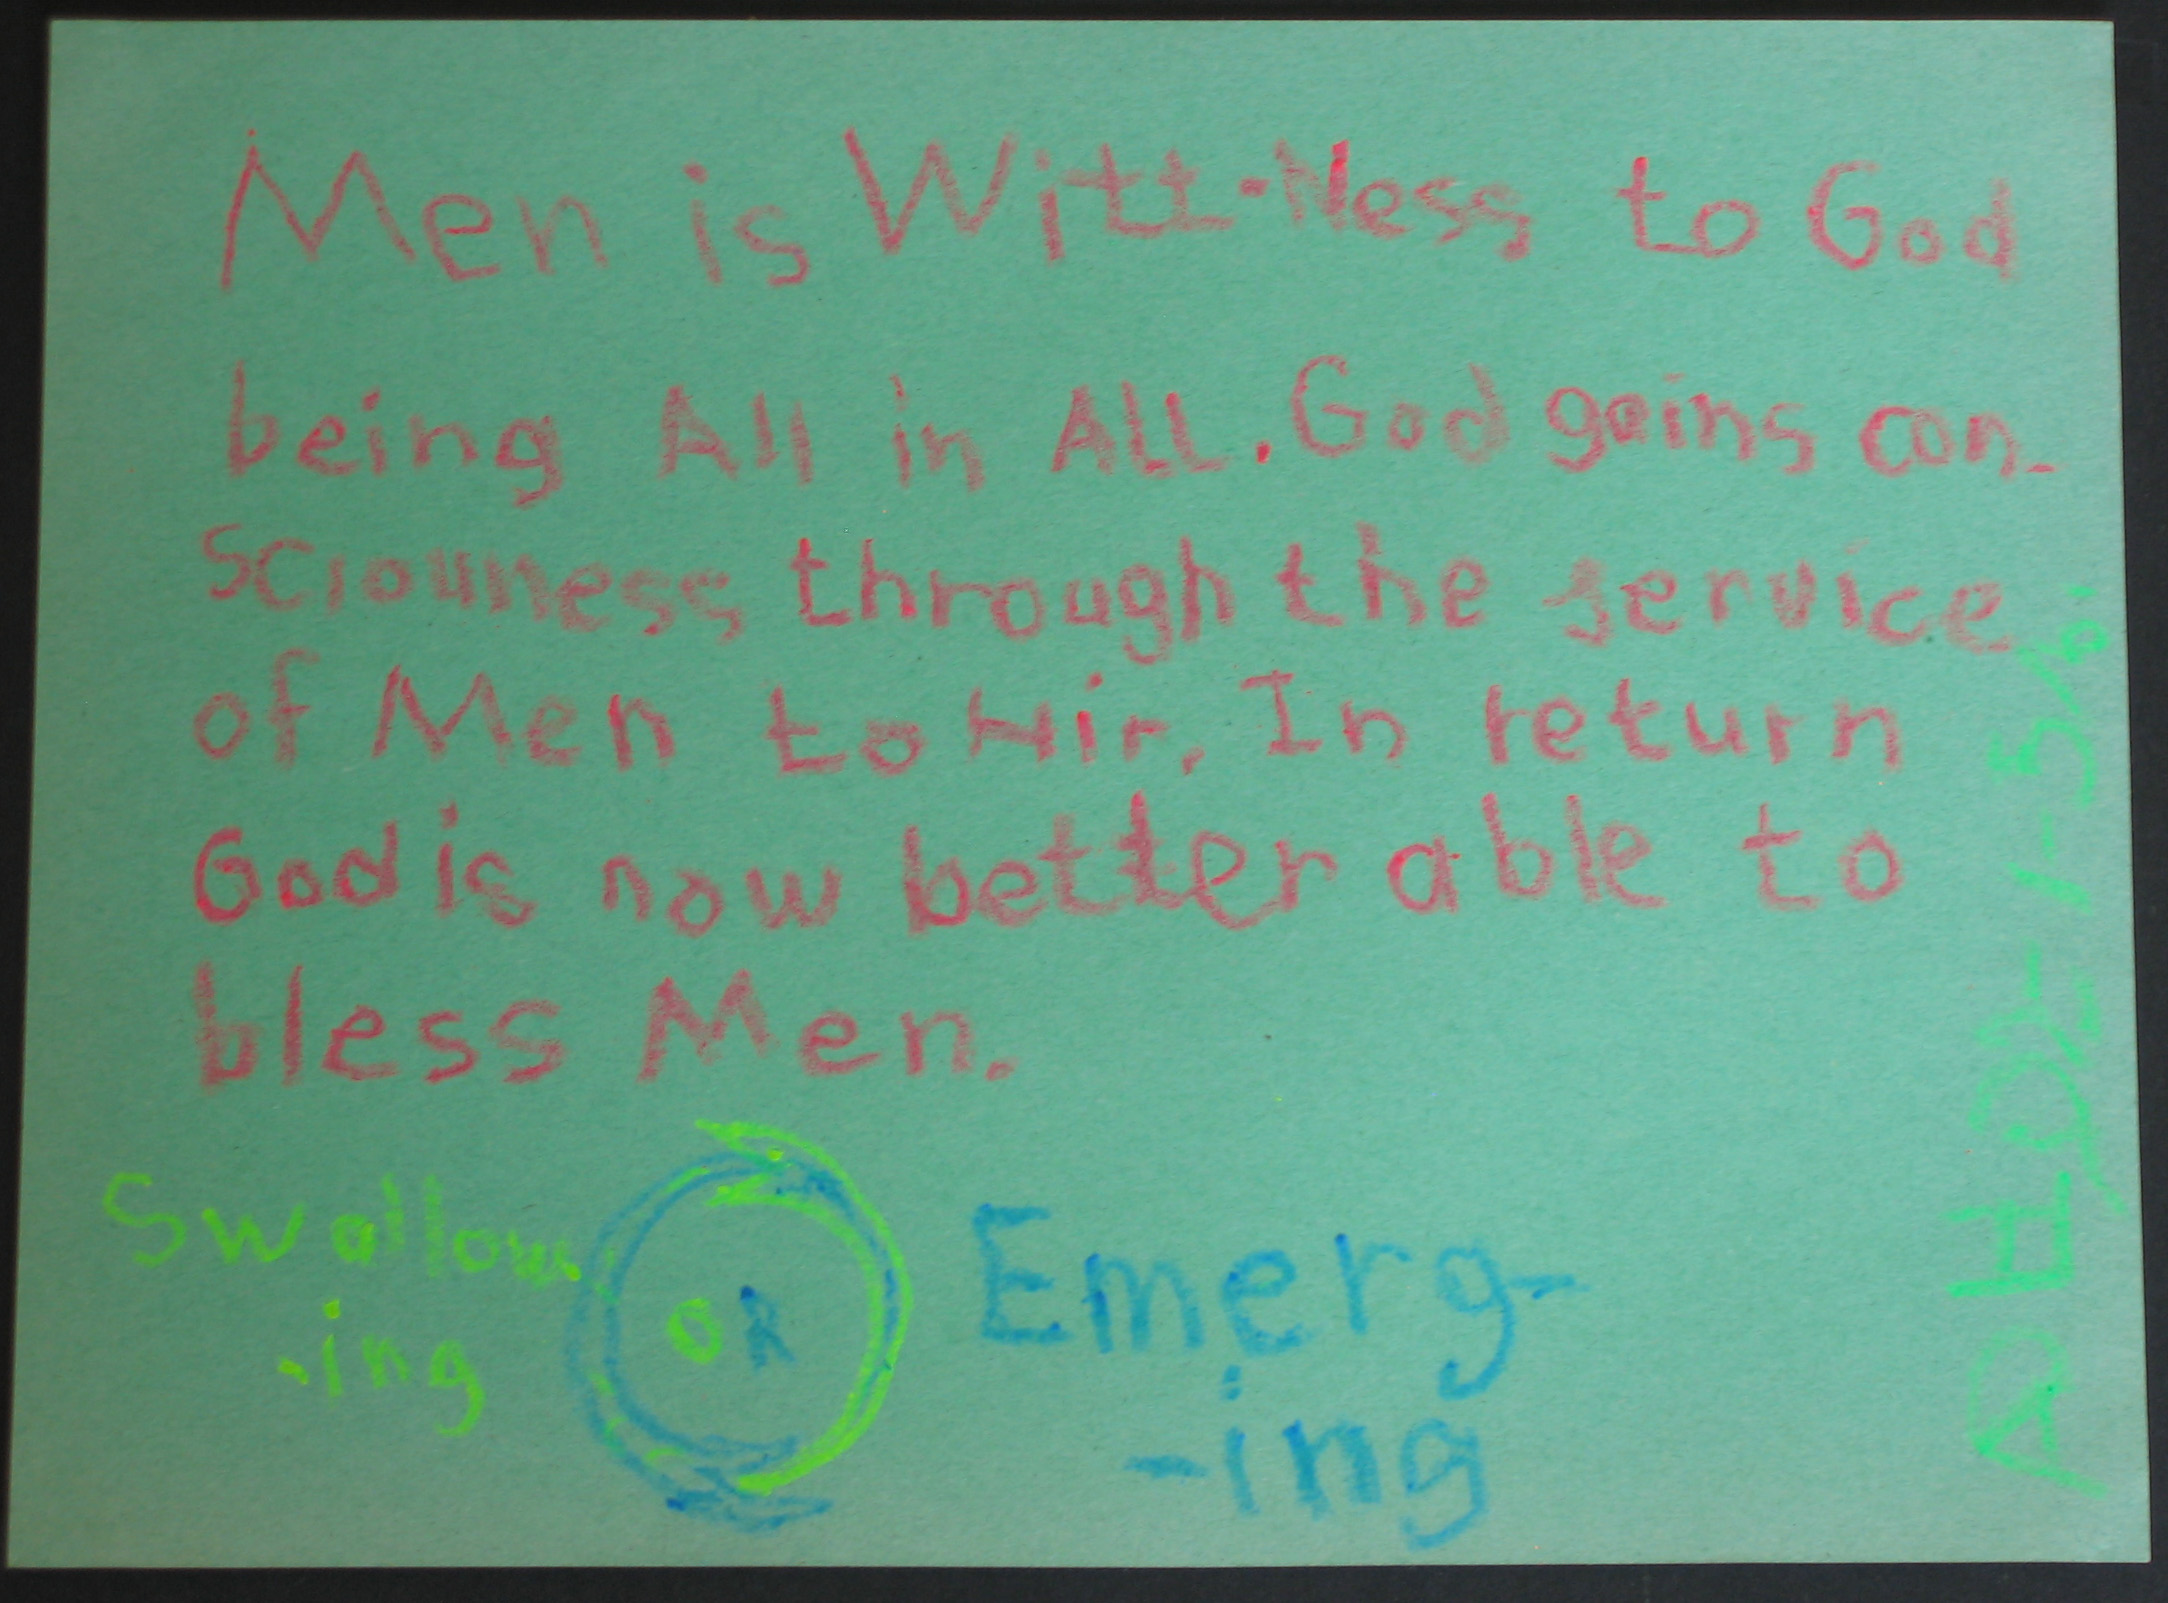 Men is Witt-Ness to God
being All in ALL. God gains con-
sciouness through the service
of Men to Hir. In return
God is now better able to
bless Men.
Swallow
-ing
OR
Emerg-
-ing